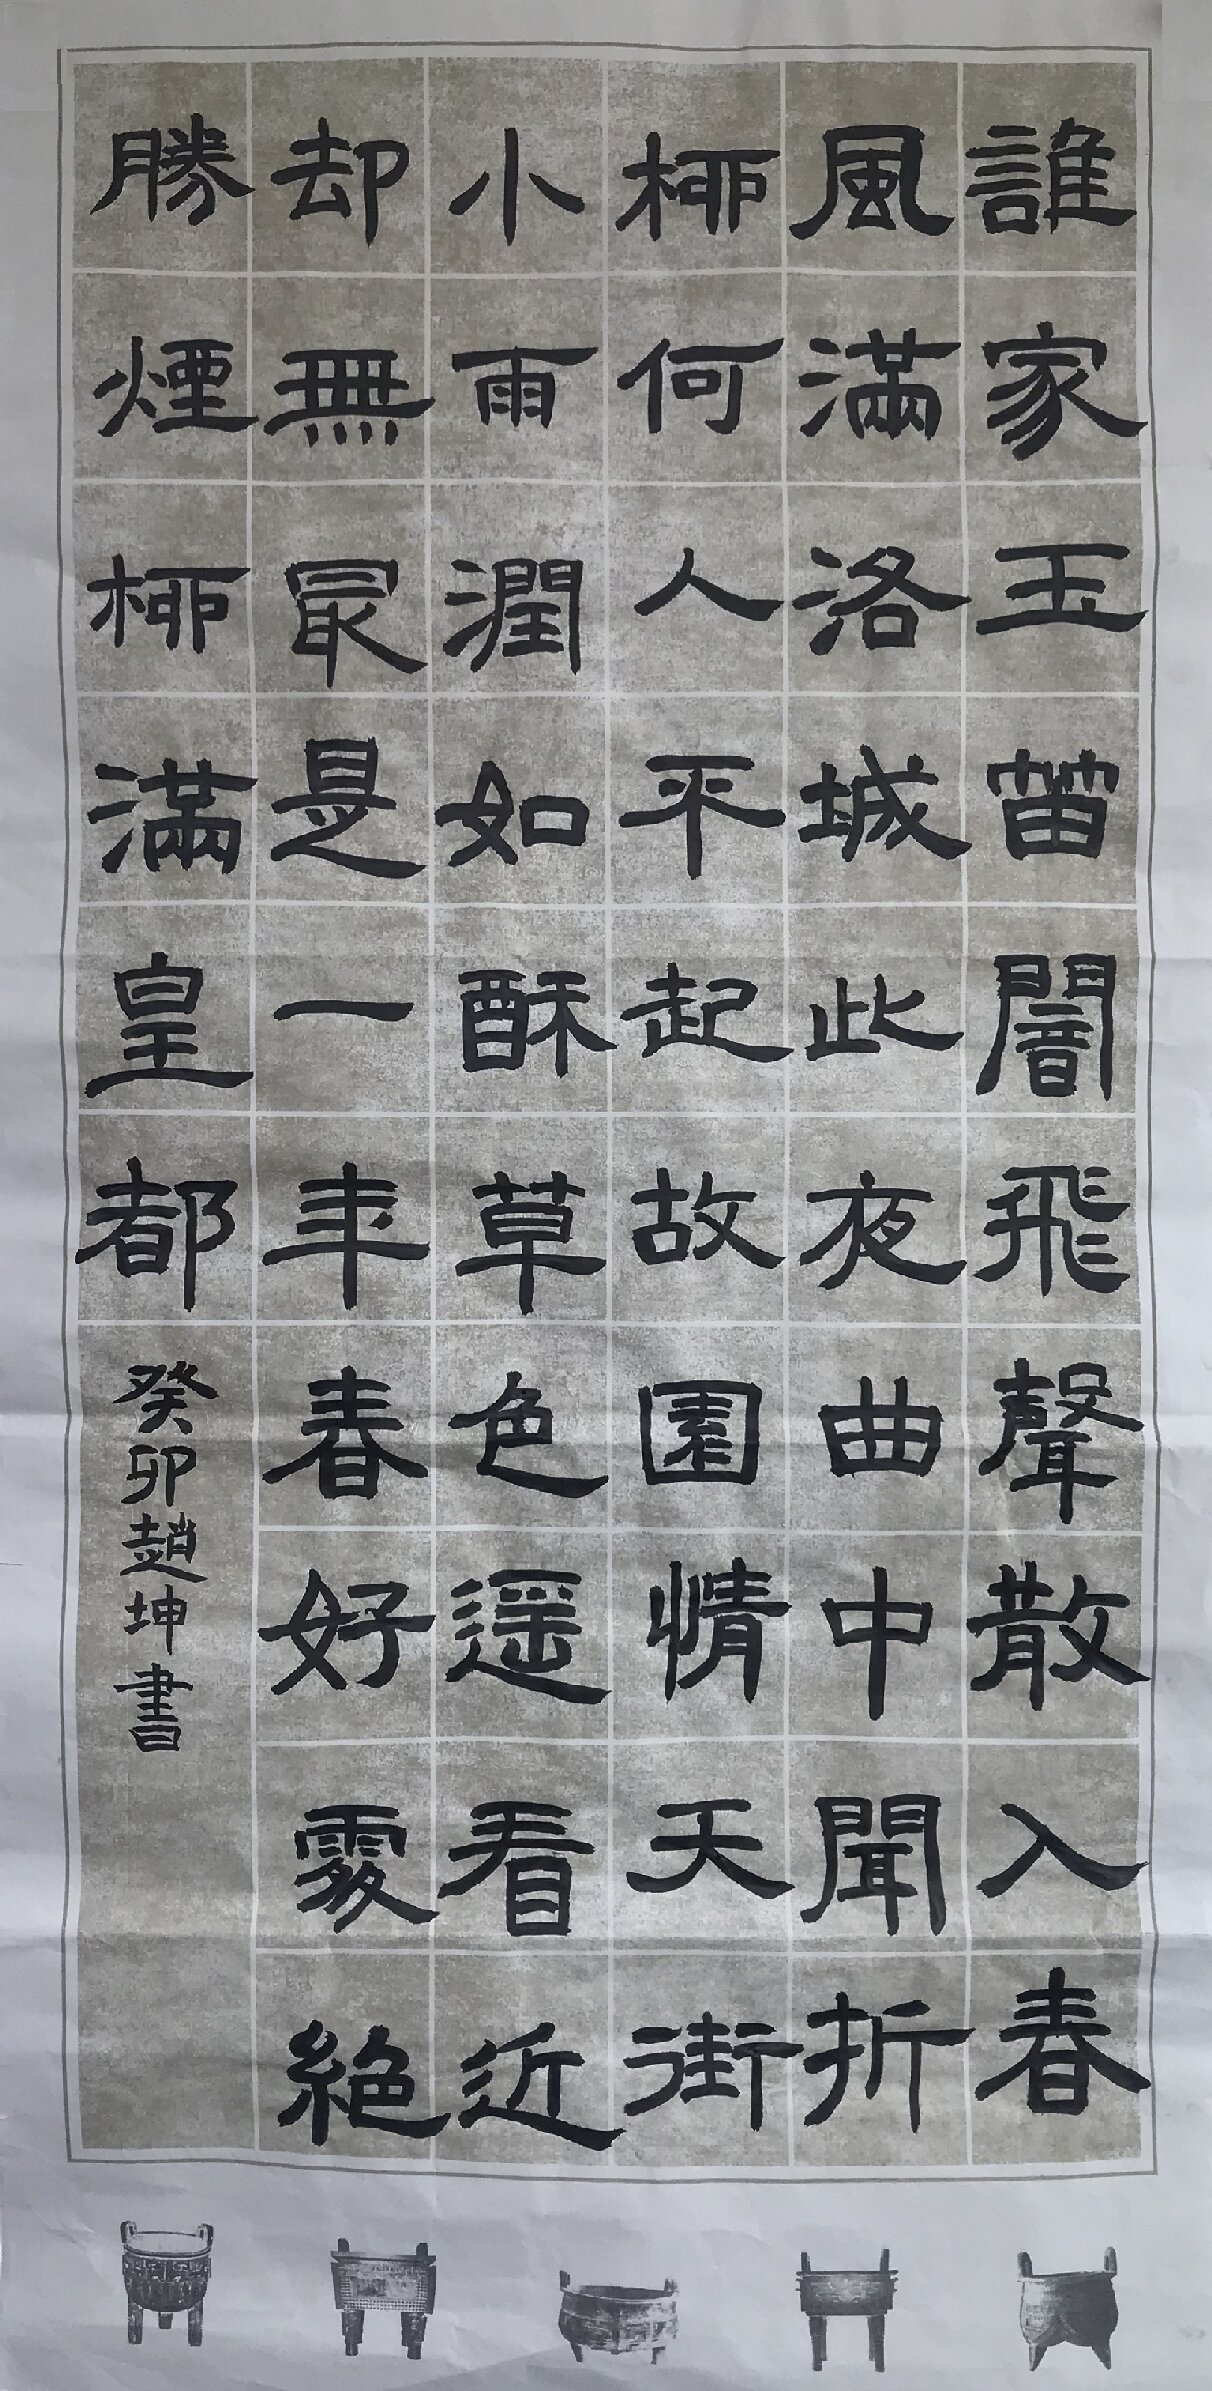 誰家玉笛闇飛聲散入春
風滿洛城此夜曲中聞折
柳何人不起故園情天街
小雨潤如酥草色遥看近
却無最是一年春好處絕
勝煙柳滿皇都
癸卯趙坤書